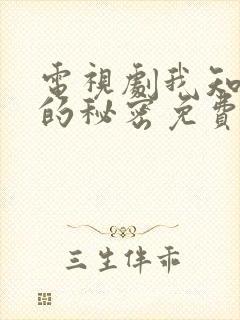 電視劇我知
的秘密免費
三生伴乖